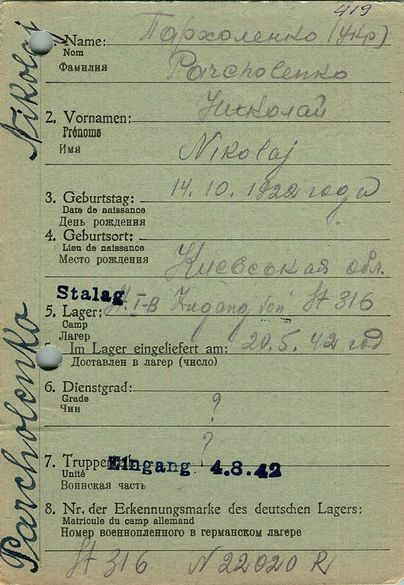 419
Name: Пархоленко (Укр)
Nom
Фамилия Parcholenko
2. Vornamen: Николай
Prénoms
Имя Nikolaj
3. Geburtstag: 14. 10. 1922 года
Date de naissance
День рождения
4. Geburtsort:
Lieu de naissance
Место рождения Киевськая обл.
Stalag
5. Lager: I-B Zugang von St 316
Camp
Лагер
Im Lager eingeliefert am: 20.5.42 год
Доставлен в лагер (число)
6. Dienstgrad: ?
Grade
Чин
?
7. Truppen
Eingang 4.8.42
Unité
Воинская часть
8. Nr. der Erkennungsmarke des deutschen Lagers:
Matricule du camp allemand
Номер военнопленного в германском лагере
St 316 N 22020 R
Parcholenko Nikolaj